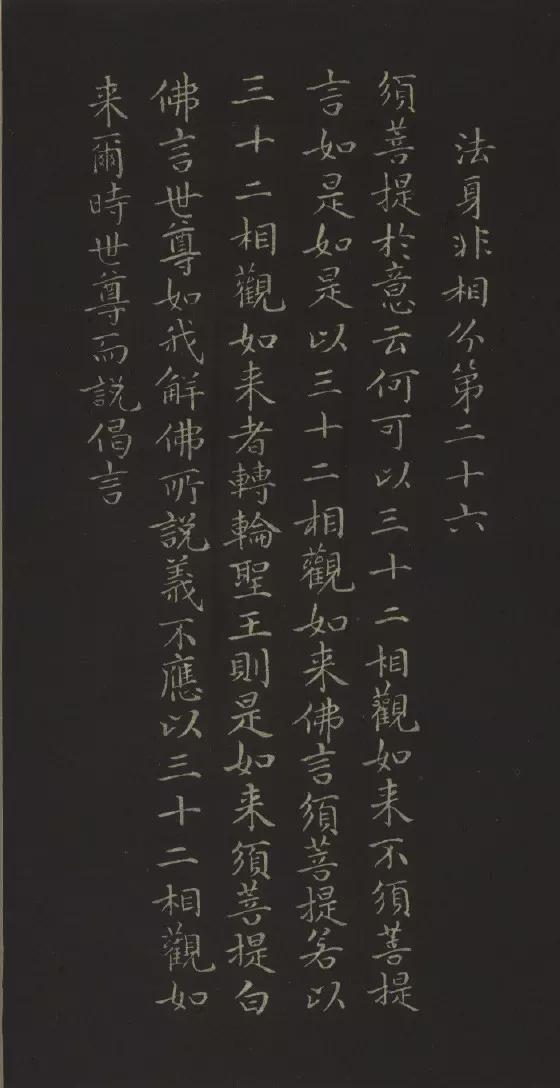 法身非相分第二十六
須菩提於意云何可以三十二相觀如来不須菩提
言如是如是以三十二相觀如来佛言須菩提若以
三十二相觀如来者轉輪聖王則是如来須菩提白
佛言世尊如我解佛所說義不應以三十二相觀如
来爾時世尊而說偈言